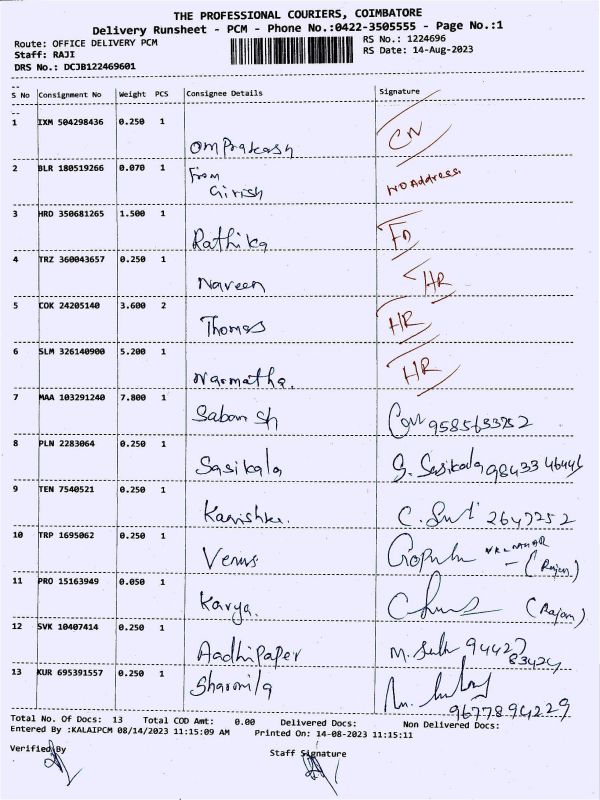 THE PROFESSIONAL COURIERS, COIMBATORE
Delivery Runsheet - PCM - Phone No.:0422-3505555 - Page No.:1
Route: OFFICE DELIVERY PCM
RS No.: 1224696
Staff: RAJI
RS Date: 14-Aug-2023
DRS No.: DCJB122469601
--
S No Consignment No Weight PCS Consignee Details Signature
--
1 IXM 504298436 0.250 1
Om Prakash CN
2 BLR 180519266 0.070 1
From
Girish NO Address
3 HRD 350681265 1.500 1
Rathika FD
4 TRZ 360043657 0.250 1
Naveen HR
5 COK 24205140 3.600 2
Thomas HR
6 SLM 326140900 5.200 1
Narmatha. HR
7 MAA 103291240 7.800 1
Sabarish 9585633252
8 PLN 2283064 0.250 1
Sasikala S. Sasikala 98433 46446
9 TEN 7540521 0.250 1
Kanishka. 2647252
10 TRP 1695062 0.250 1
Venus Gopulu - (Rajan)
11 PRO 15163949 0.050 1
Karya. (Rajan)
12 SVK 10407414 0.250 1
Aadhipaper M. 94427
83424
13 KUR 695391557 0.250 1
Sharmila
9677894229
Total No. Of Docs: 13 Total COD Amt: 0.00 Delivered Docs: Non Delivered Docs:
Entered By :KALAIPCM 08/14/2023 11:15:09 AM Printed On: 14-08-2023 11:15:11
Verified By Staff Signature